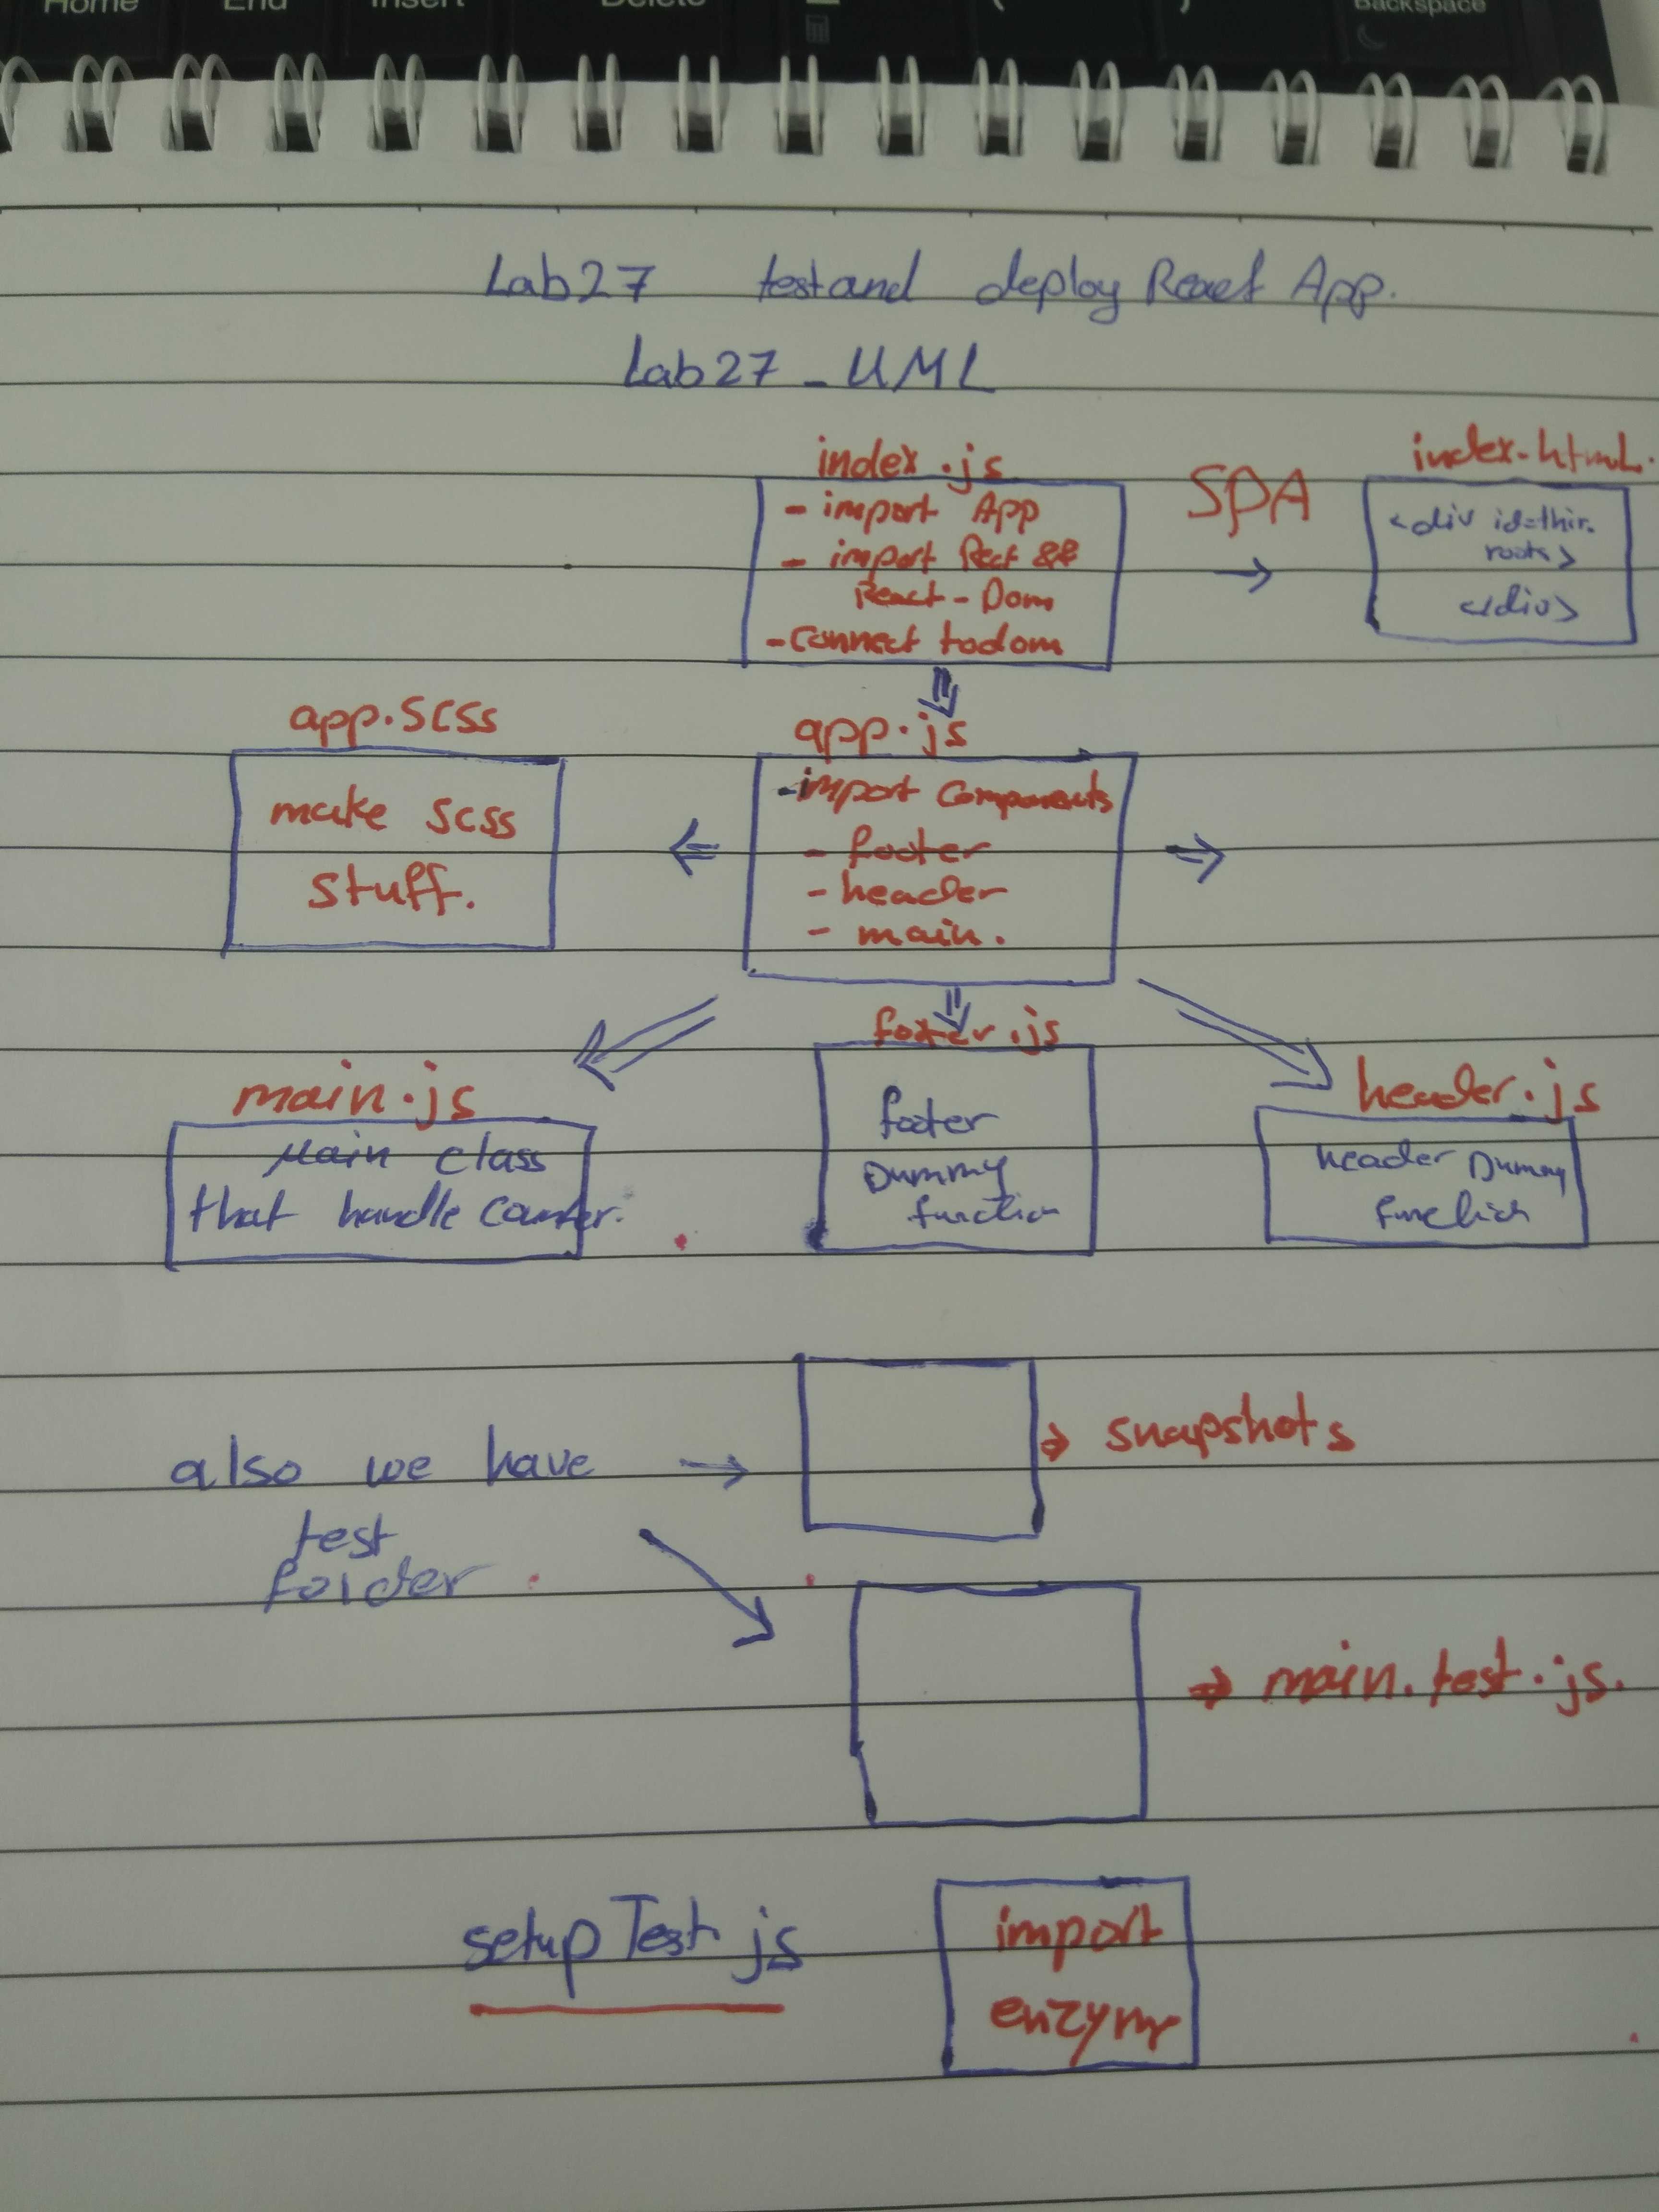 Home End Insert Delete Backspace
Lab27 test and deploy React App.
Lab27_UML
index.js
- import App
- import Rect &&
React-Dom
- Connect todom
SPA
index.html.
<div id=
roots>
</div>
app.scss
make scss
stuff.
app.js
- import Components
- footer
- header
- main.
main.js
Main class
that handle counter.
footer.js
footer
Dummy
function
header.js
header Dummy
function
also we have
test
folder
snapshots
main.test.js.
setupTest.js
import
enzyme